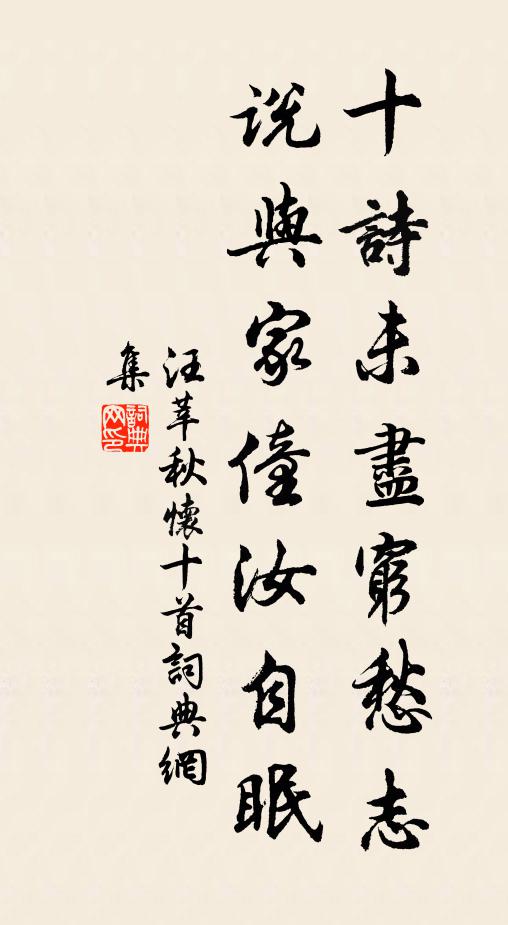 十詩未盡窮愁志
説與家僮汝自眠
汪莘秋懷十首詞典網
集
詞典
网印